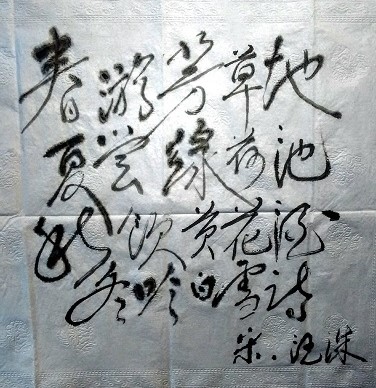 春游芳草地
夏赏绿荷池
秋饮黄花酒
冬吟白雪诗
宋.汪洙